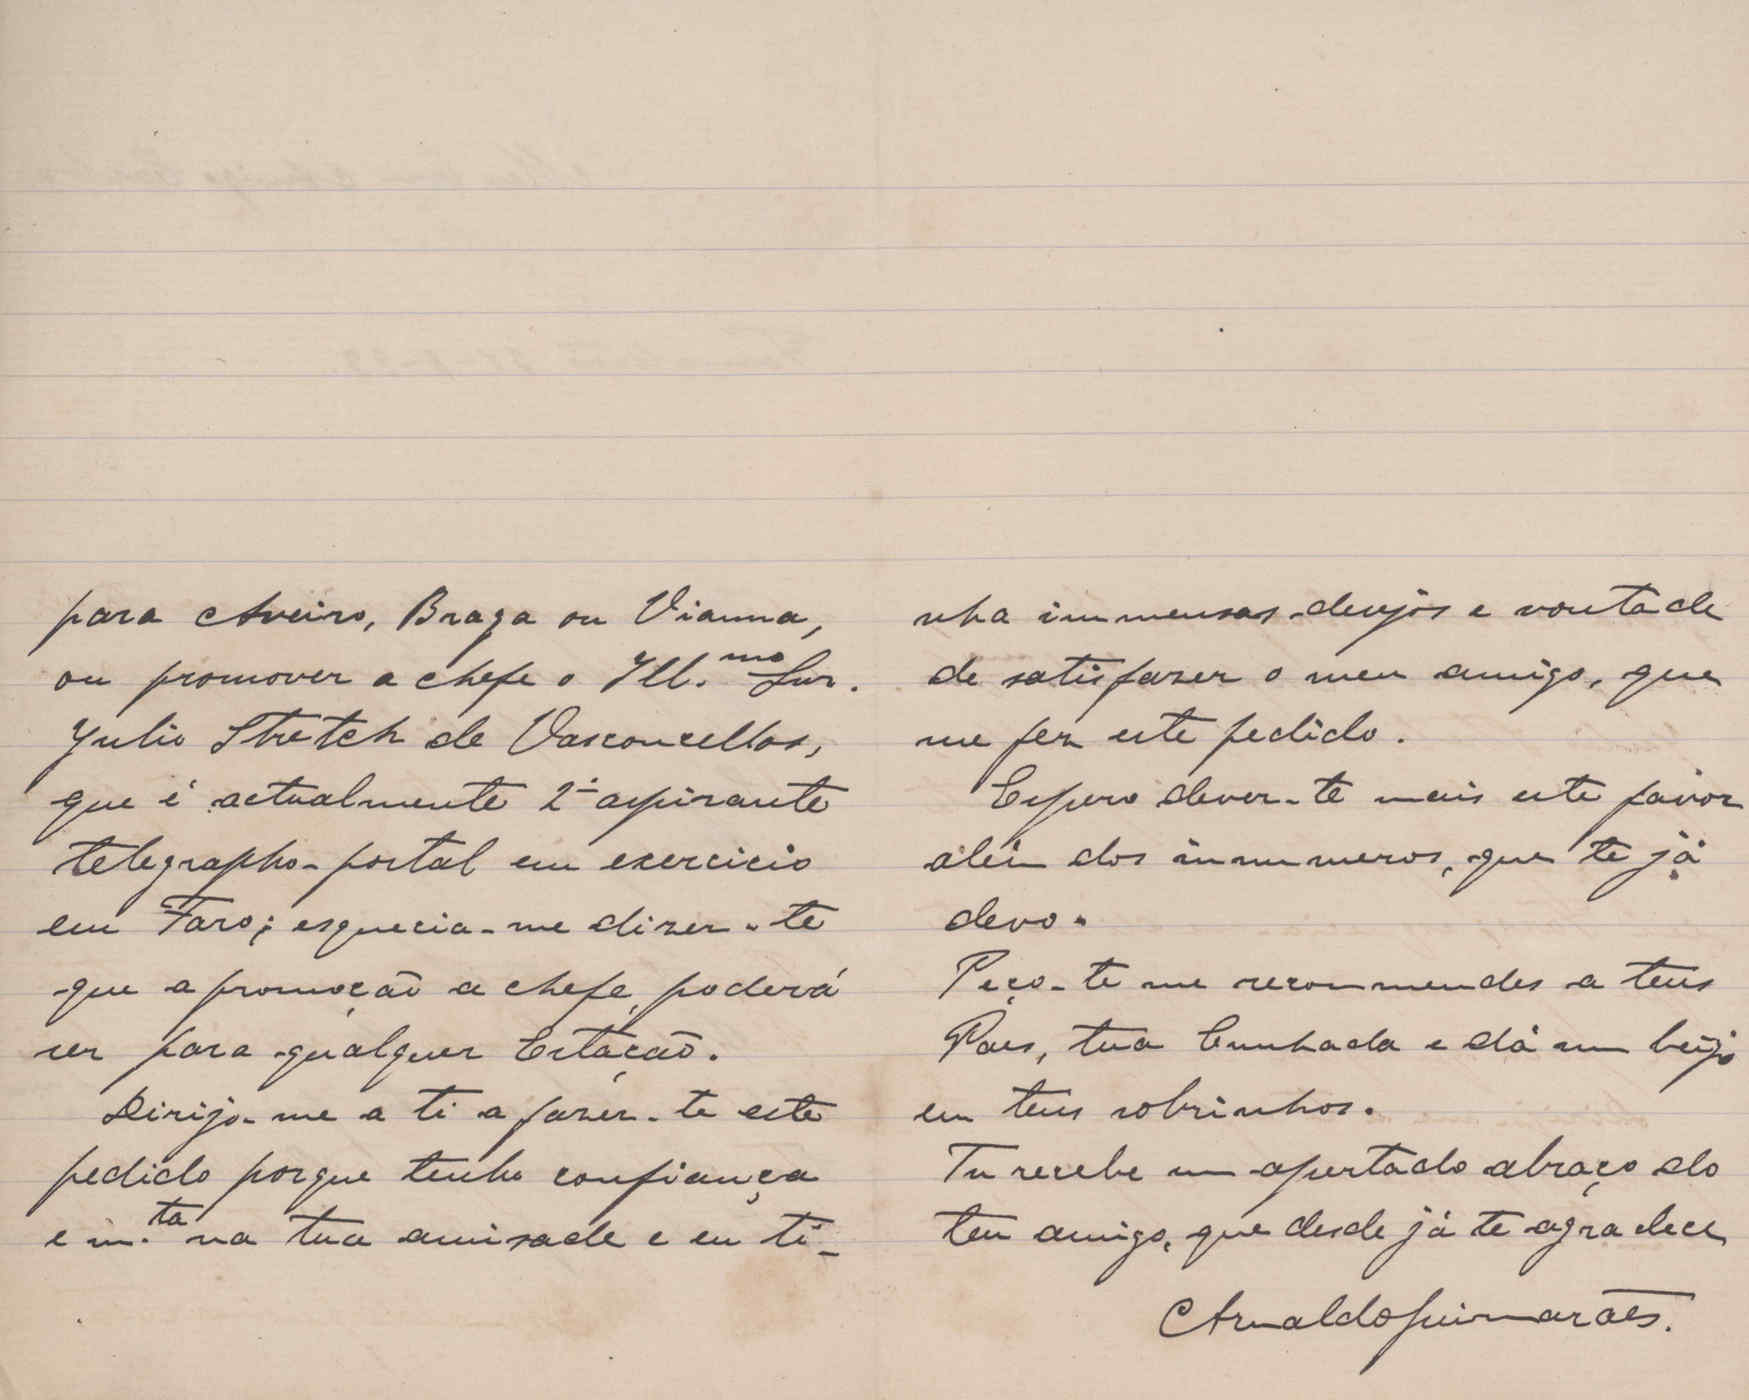 para Aveiro, Braga ou Vianna,
ou promover a chefe o Ill.mo Snr.
Julio Stretch de Vasconcellos,
que é actualmente 2º aspirante
telegrapho-postal em exercicio
em Faro; esquecia-me dizer-te
que a promoção a chefe, poderá
ser para qualquer Estação.
Dirijo-me a ti a fazer-te este
pedido porque tenho confiança
e m.ta na tua amisade e eu ti-
nha immensos desejos e vontade
de satisfazer o meu amigo, que
me fez este pedido.
Espero dever-te mais este favor
alem dos innumeros, que te já
devo.
Peço-te me recommendes a teus
Paes, tua Cunhada e dá um beijo
em teus sobrinhos.
Tu recebe um apertado abraço do
teu amigo, que desde já te agradece
Arnaldo Guimarães.